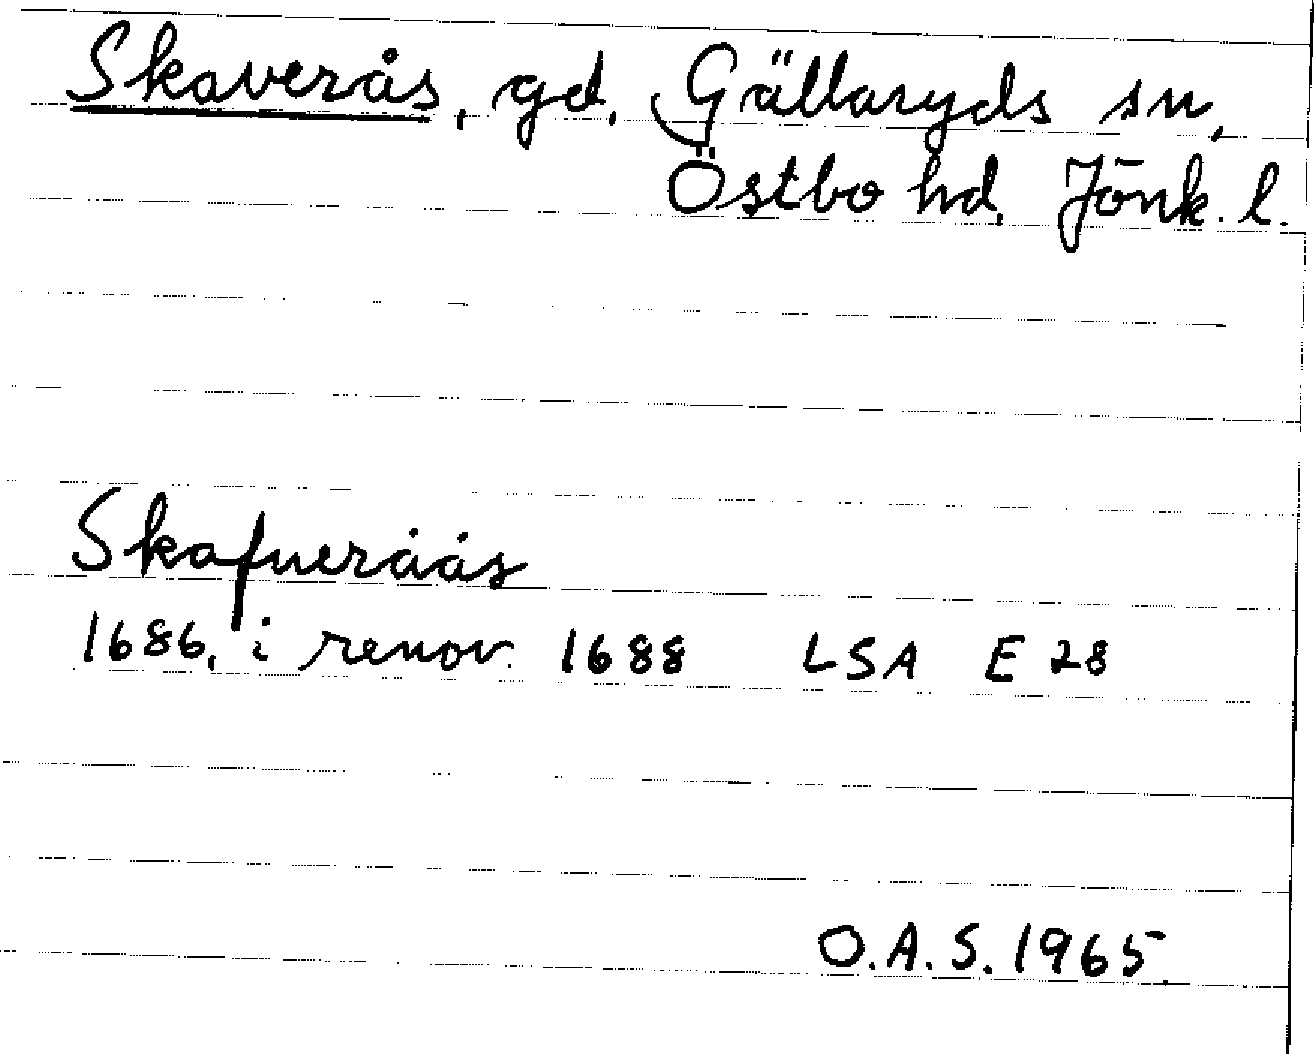 Skaverås, gd, Gällaryds sn,
Östbo hd, Jönk. l.
Skafueråås
1686, i renov. 1688 LSA E 28
O.A.S. 1965.